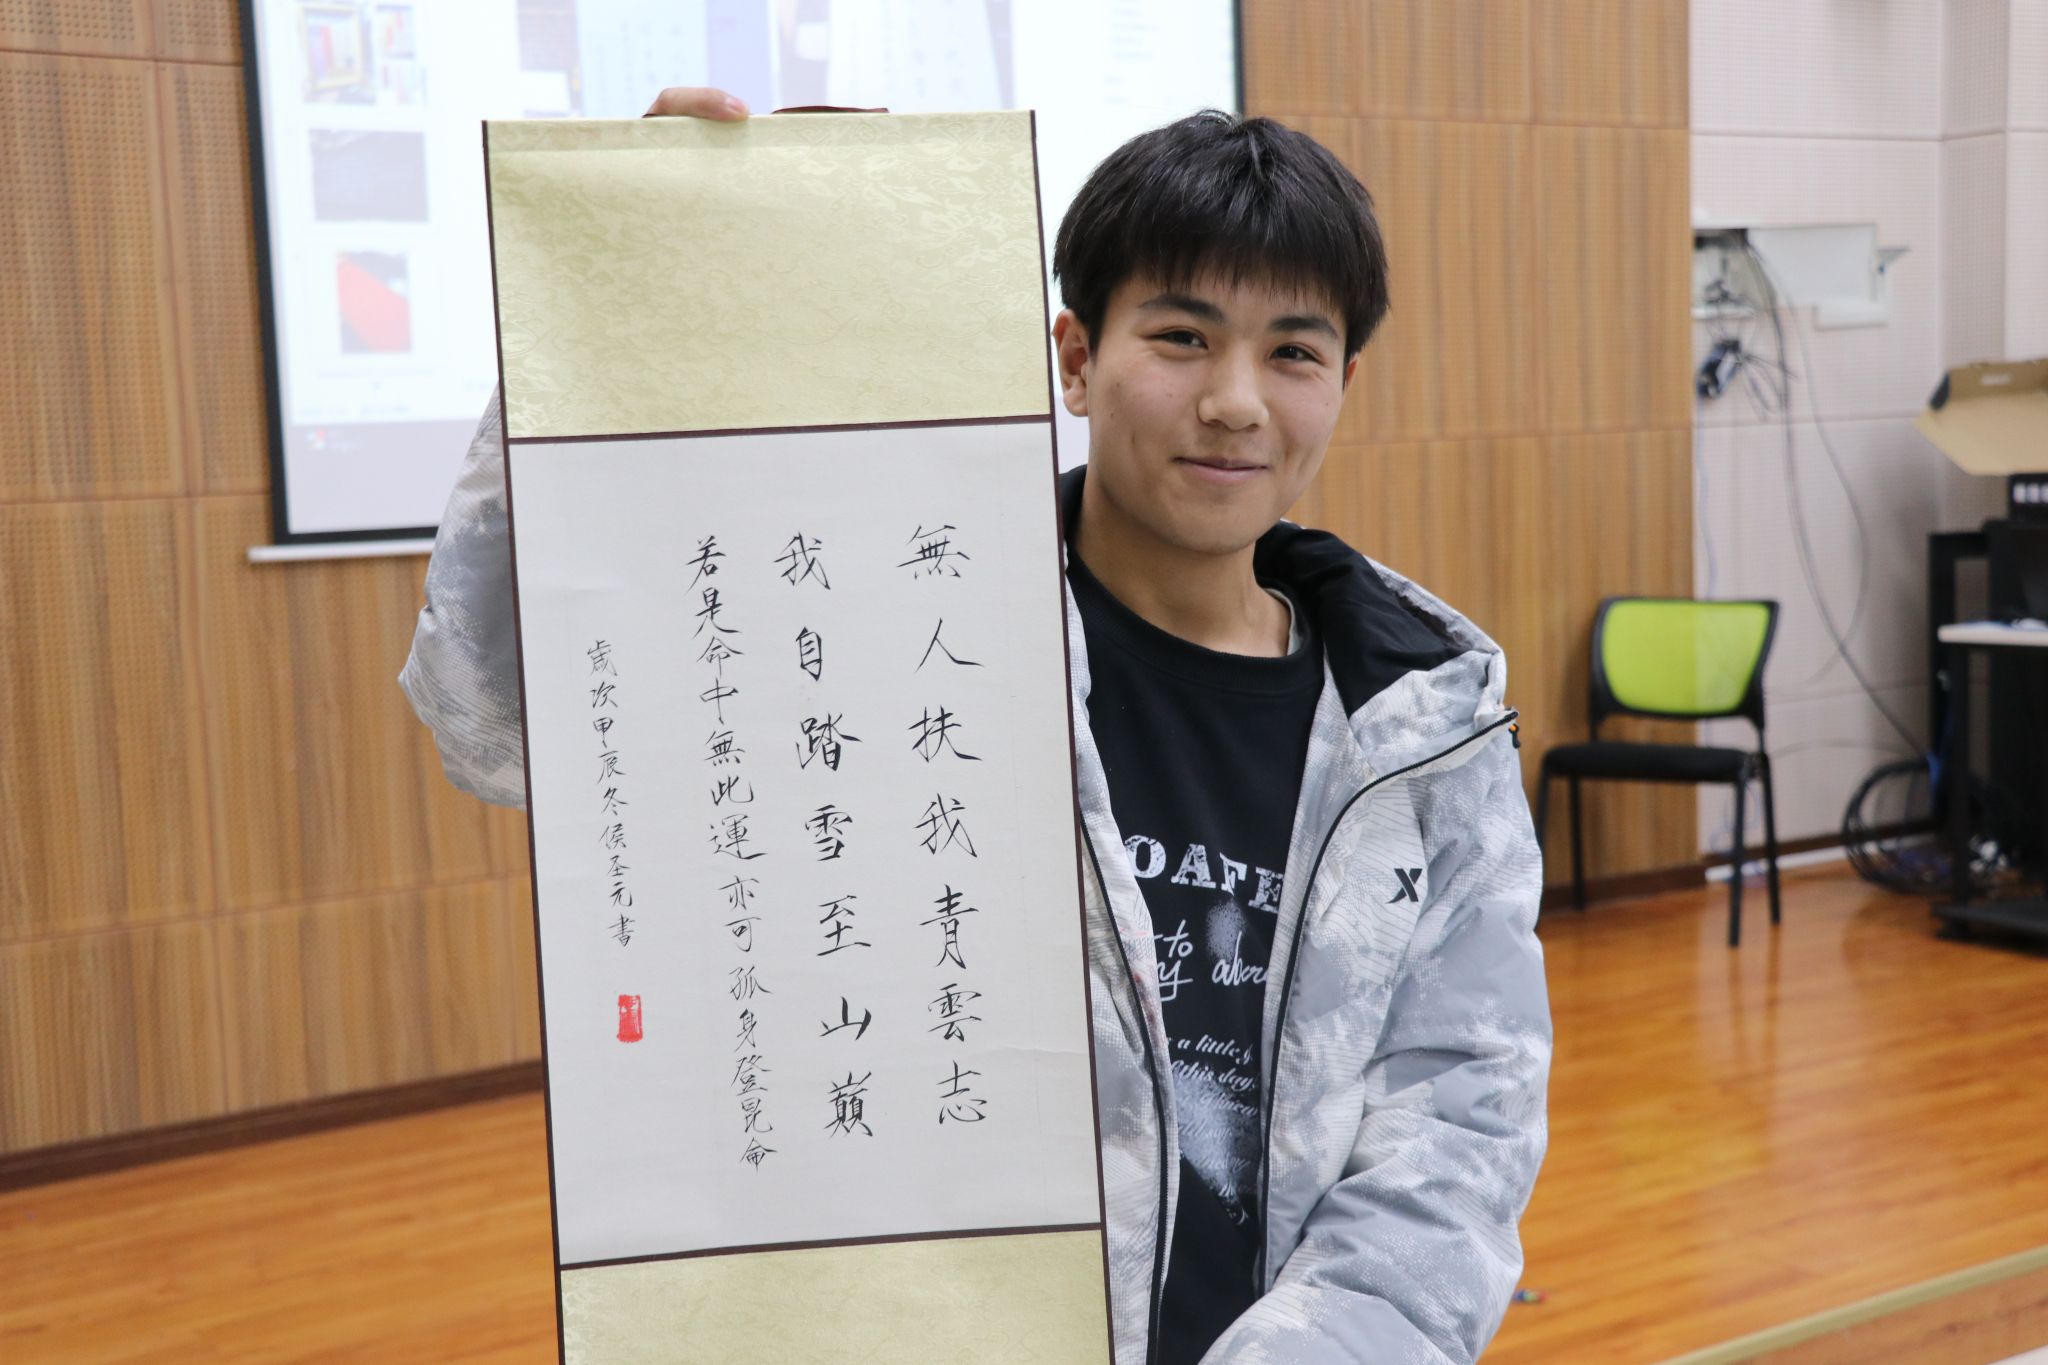 無人扶我青雲志
我自踏雪至山巔
若是命中無此運亦可孤身登昆侖
歲次甲辰冬侯圣元書
X
OAFE
to
a little
this day